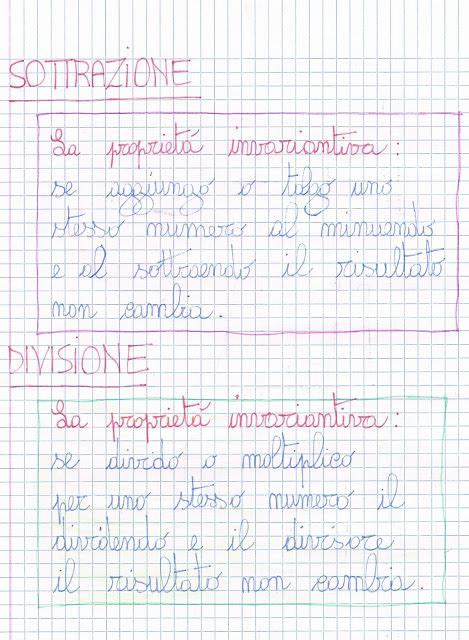 SOTTRAZIONE
La proprietá invariantiva:
se aggiungo o tolgo uno
stesso numero al minuendo
e al sottraendo il risultato
non cambia.
DIVISIONE
La proprietá invariantiva:
se divido o moltiplico
per uno stesso numero il
dividendo e il divisore
il risultato non cambia.